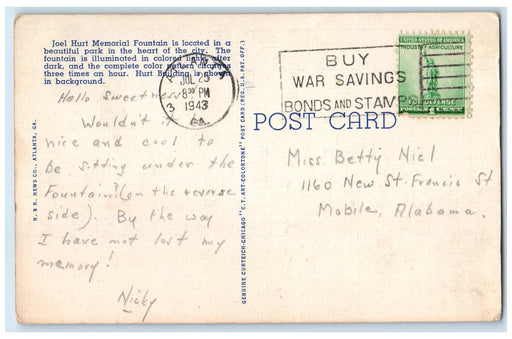 Joel Hurt Memorial Fountain is located in a
beautiful park in the heart of the city. The
fountain is illuminated in colored lights after
dark, and the complete color pattern changes
three times an hour. Hurt Building is shown
in background.
Hello Sweetness-
Wouldn't it be
nice and cool to
be sitting under the
Fountain? (on the reverse
side). By the way
I have not lost my
memory!
Nicky
R. & R. NEWS CO., ATLANTA, GA.
GENUINE CURTEICH-CHICAGO "C.T. ART-COLORTONE" POST CARD (REG. U.S. PAT. OFF.)
JUL 25
8 30 PM
1943
GA.
3
BUY
WAR SAVINGS
BONDS AND STAMPS
UNITED STATES OF AMERICA
INDUSTRY AGRICULTURE
FOR DEFENSE
POST CARD
Miss Betty Niel
1160 New St. Francis St
Mobile, Alabama.